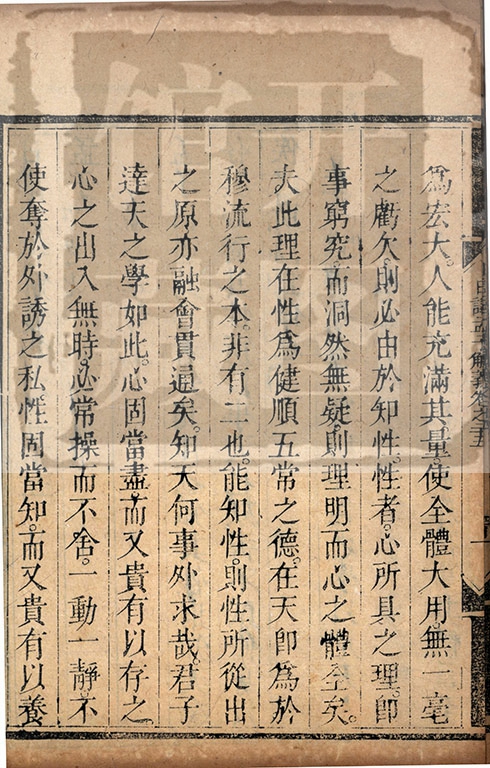 為宏大。人能充滿其量。使全體大用。無一毫
之虧欠。則必由於知性。性者。心所具之理。即
事窮究而洞然無疑。則理明而心之體全矣。
夫此理在性為健順五常之德。在天即為於
穆流行之本。非有二也。能知性。則性所從出
之原亦融會貫通矣。知天何事外求哉。君子
達天之學如此。心固當盡。而又貴有以存之
心之出入無時。必常操而不舍。一動一靜。不
使奪於外誘之私。性固當知。而又貴有以養